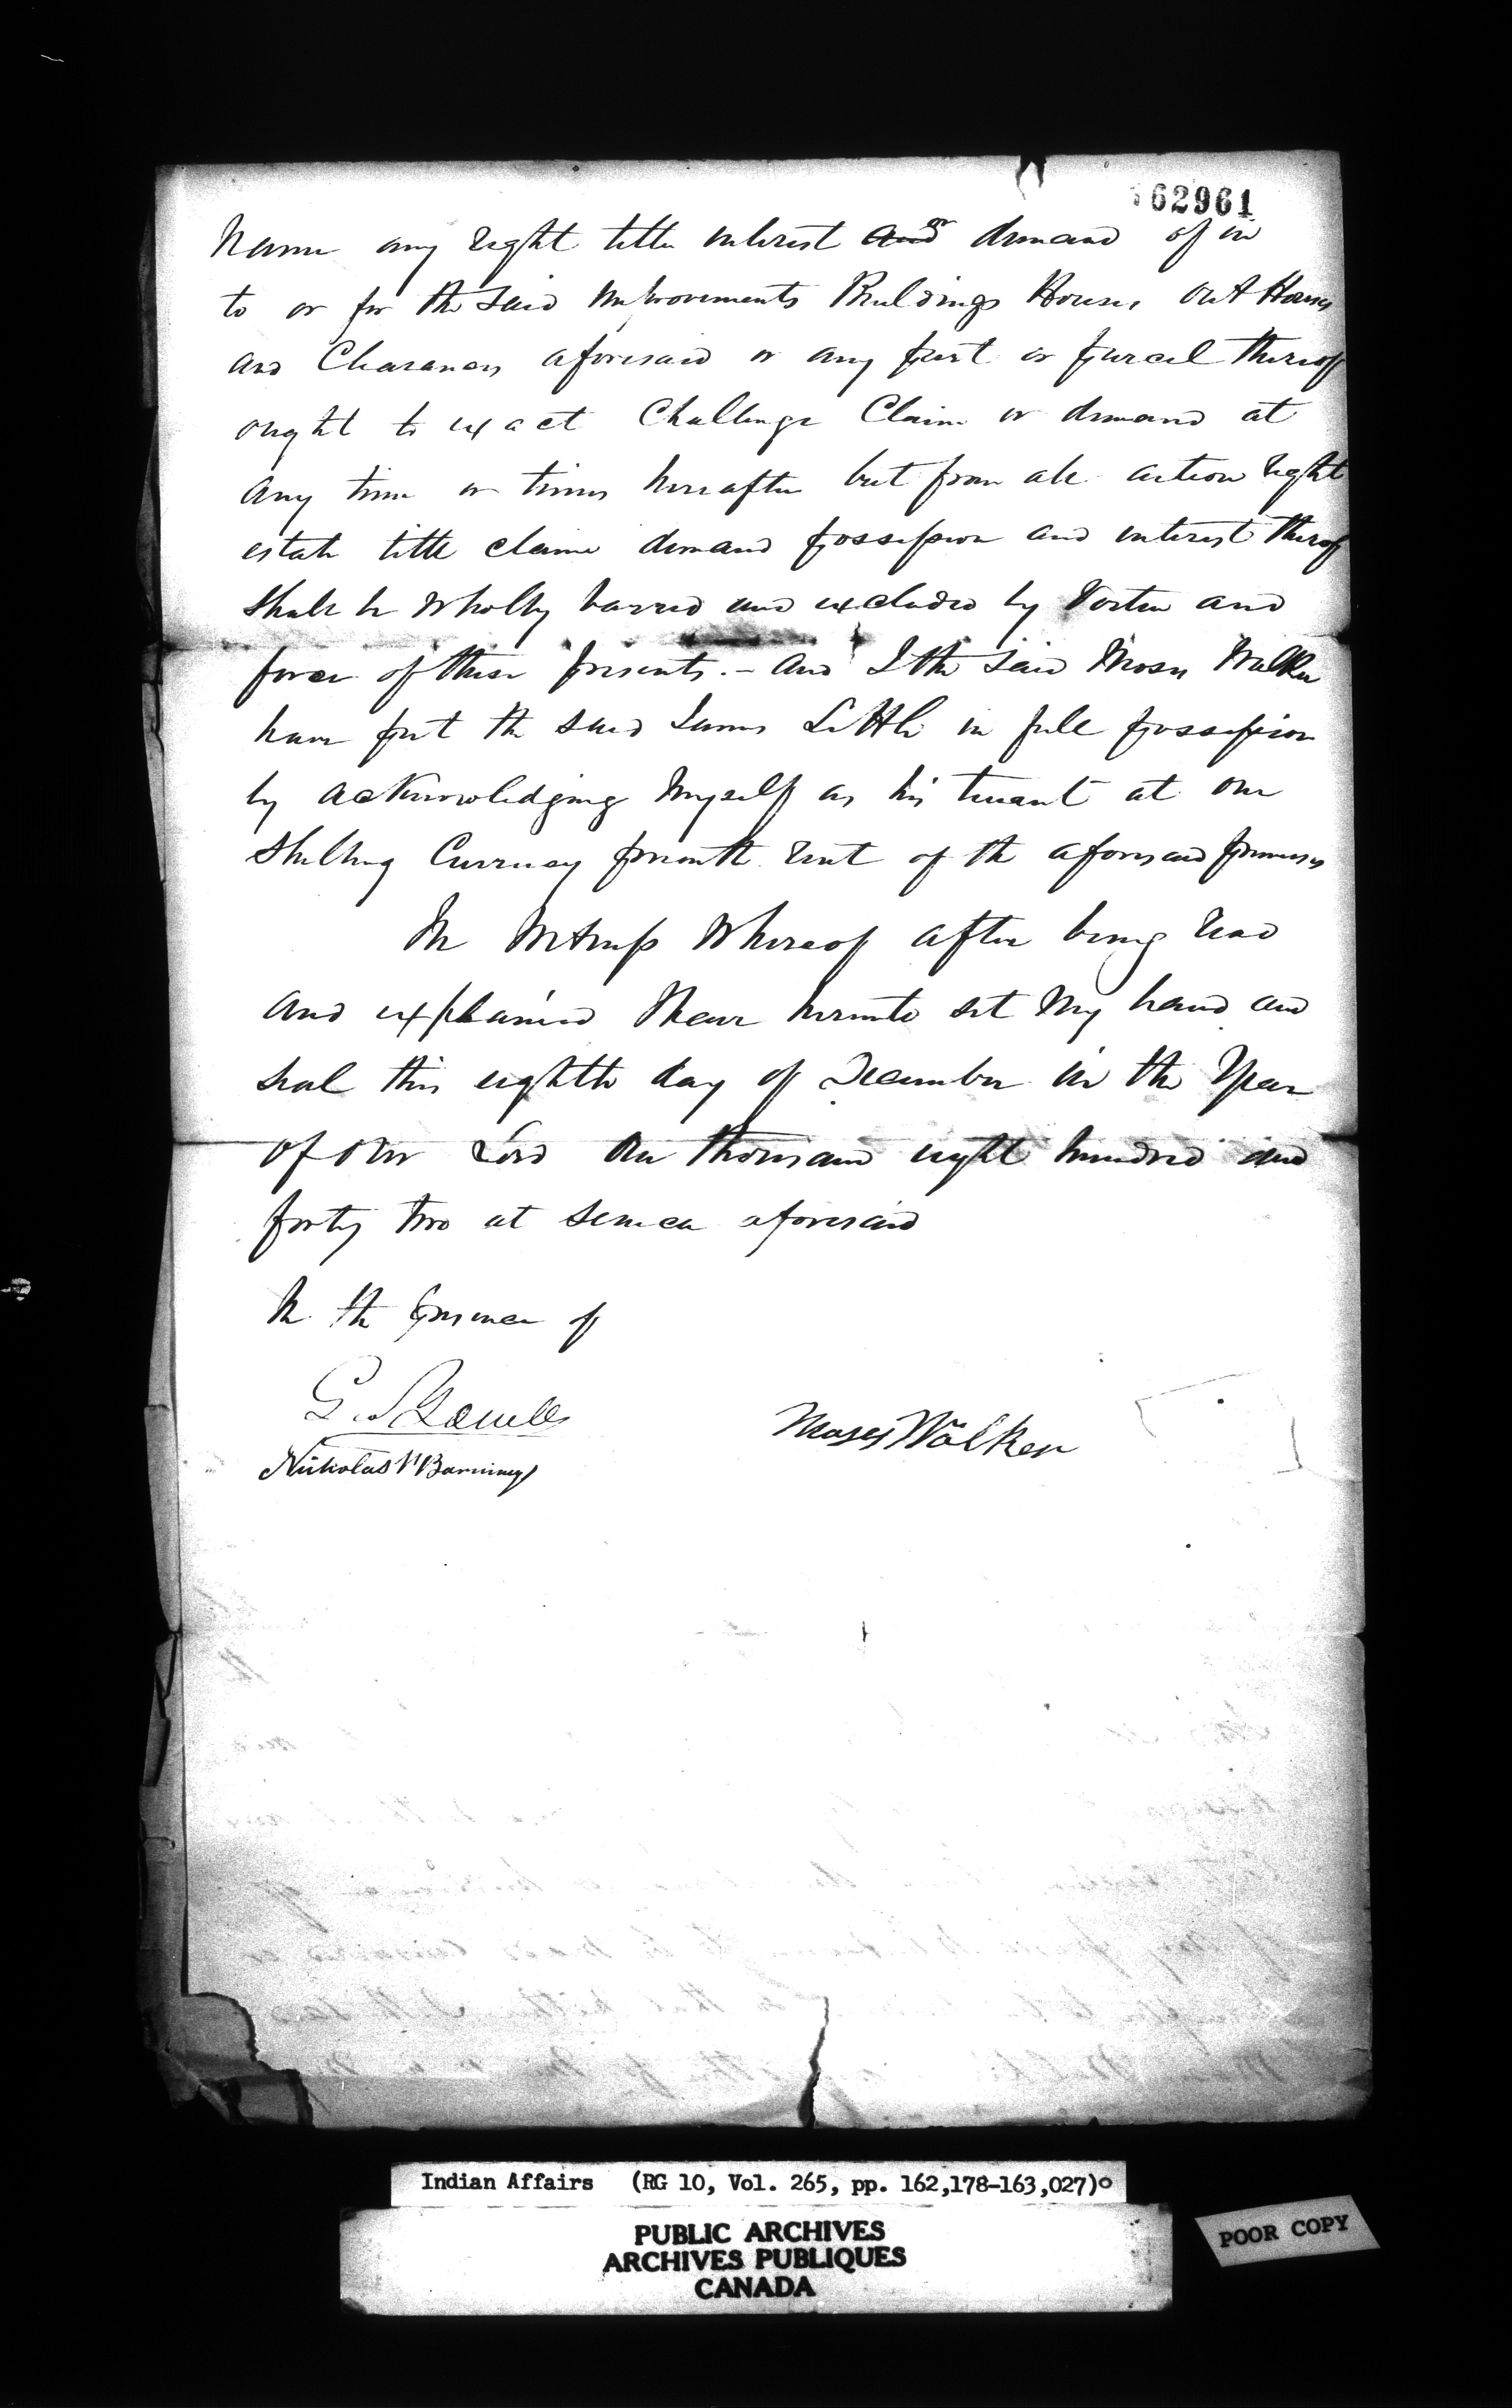 162961
Name any right title interest and or demand of in
to or for the said Improvements Buildings Houses Out Houses
and Clearances aforesaid or any part or parcel thereof
ought to exact Challenge Claim or demand at
any time or times hereafter but from all action right
estate title claim demand possession and interest thereof
shall be wholly barred and excluded by Vertue and
force of these presents. – And I the said Moses Walker
have put the said James Little in full possession
by acknowledging myself as his tenant at one
Shilling Currency pr month rent of the aforesaid premises
In Witness Whereof after being read
and explained I have hereunto set my hand and
seal this eighth day of December in the Year
of Our Lord One thousand eight hundred and
forty two at Seneca aforesaid
In the presence of
Moses Walker
Indian Affairs (RG 10, Vol. 265, pp. 162,178-163,027)
PUBLIC ARCHIVES
ARCHIVES PUBLIQUES
CANADA
POOR COPY